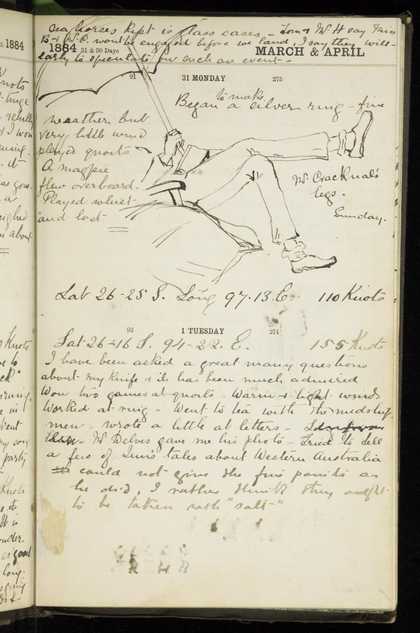 sea horses kept in glass cases — Tom & Mr H say Miss
B & Mr B. won't be engaged before we land, I say they will
early to speculate on such an event —
1884 91 & 90 Days MARCH & APRIL
91 31 MONDAY 275
Began to make a silver ring - fine
weather but
very little wind
played quoits
A magpie
flew overboard
Played whist
and lost
Mr Cracknal's
legs.
Sunday.
Lat 26-25 S. Long 97.13 E. 110 Knots
92 1 TUESDAY 274
Lat 26-16 S. 94-22 E. 155 Knots
I have been asked a great many questions
about my knife & it has been much admired
Won two games at quoits - Warm & light winds
Worked at ring - Went to tea with the midship
men - wrote a little at letters -
Mr Delves gave me his photo - Tried to tell
a few of tales about Western Australia
could not give the fine points as
he did, I rather think they ought
to be taken with "salt"